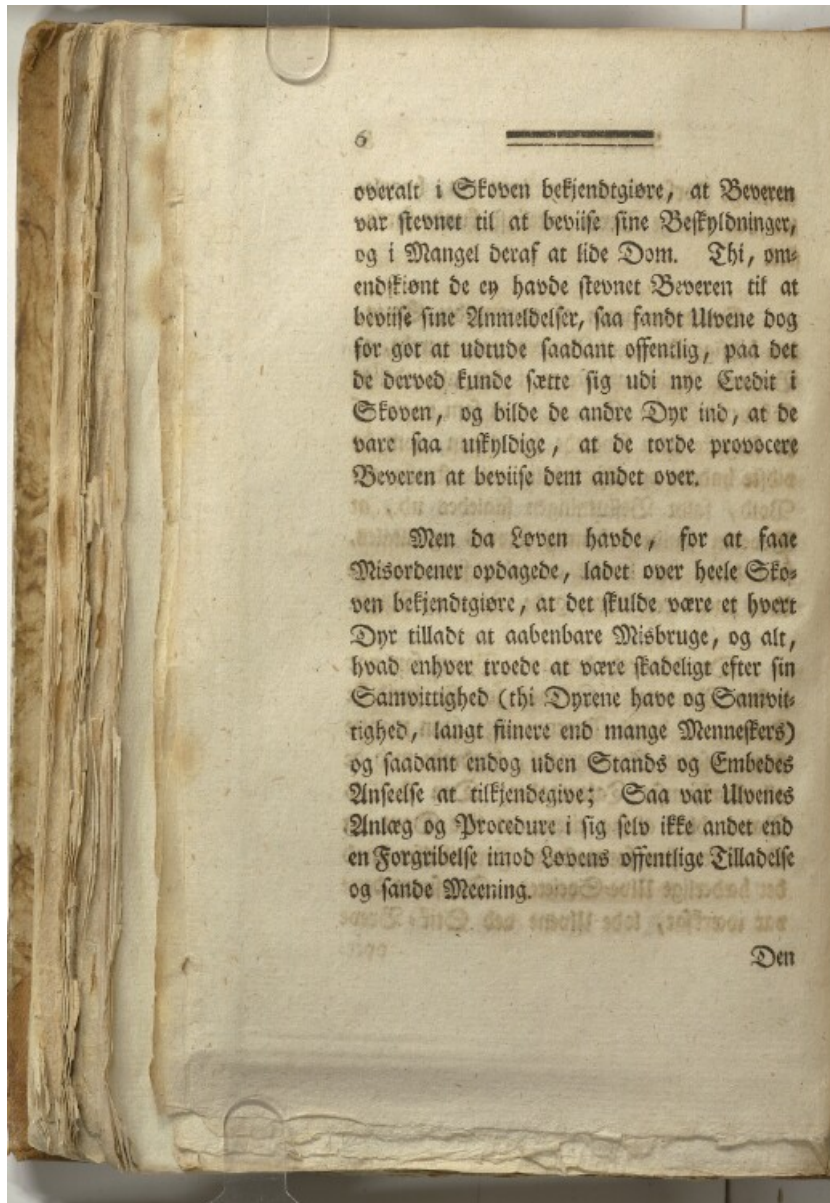 6
overalt i Skoven bekjendtgiøre, at Beveren
var stevnet til at beviise sine Beskyldninger,
og i Mangel deraf at lide Dom. Thi, om-
endskiønt de ey havde stevnet Beveren til at
beviise sine Anmeldelser, saa fandt Ulvene dog
for got at udtude saadant offentlig, paa det
de derved kunde sætte sig udi nye Credit i
Skoven, og bilde de andre Dyr ind, at de
vare saa uskyldige, at de torde provocere
Beveren at beviise dem andet over.
Men da Løven havde, for at faae
Misordener opdagede, ladet over heele Sko-
ven bekjendtgiøre, at det skulde være et hvert
Dyr tilladt at aabenbare Misbruge, og alt,
hvad enhver troede at være skadeligt efter sin
Samvittighed (thi Dyrene have og Samvit-
tighed, langt fiinere end mange Menneskers)
og saadant endog uden Stands og Embedes
Anseelse at tilkjendegive; Saa var Ulvenes
Anlæg og Procedure i sig selv ikke andet end
en Forgribelse imod Løvens offentlige Tilladelse
og sande Meening.
Den